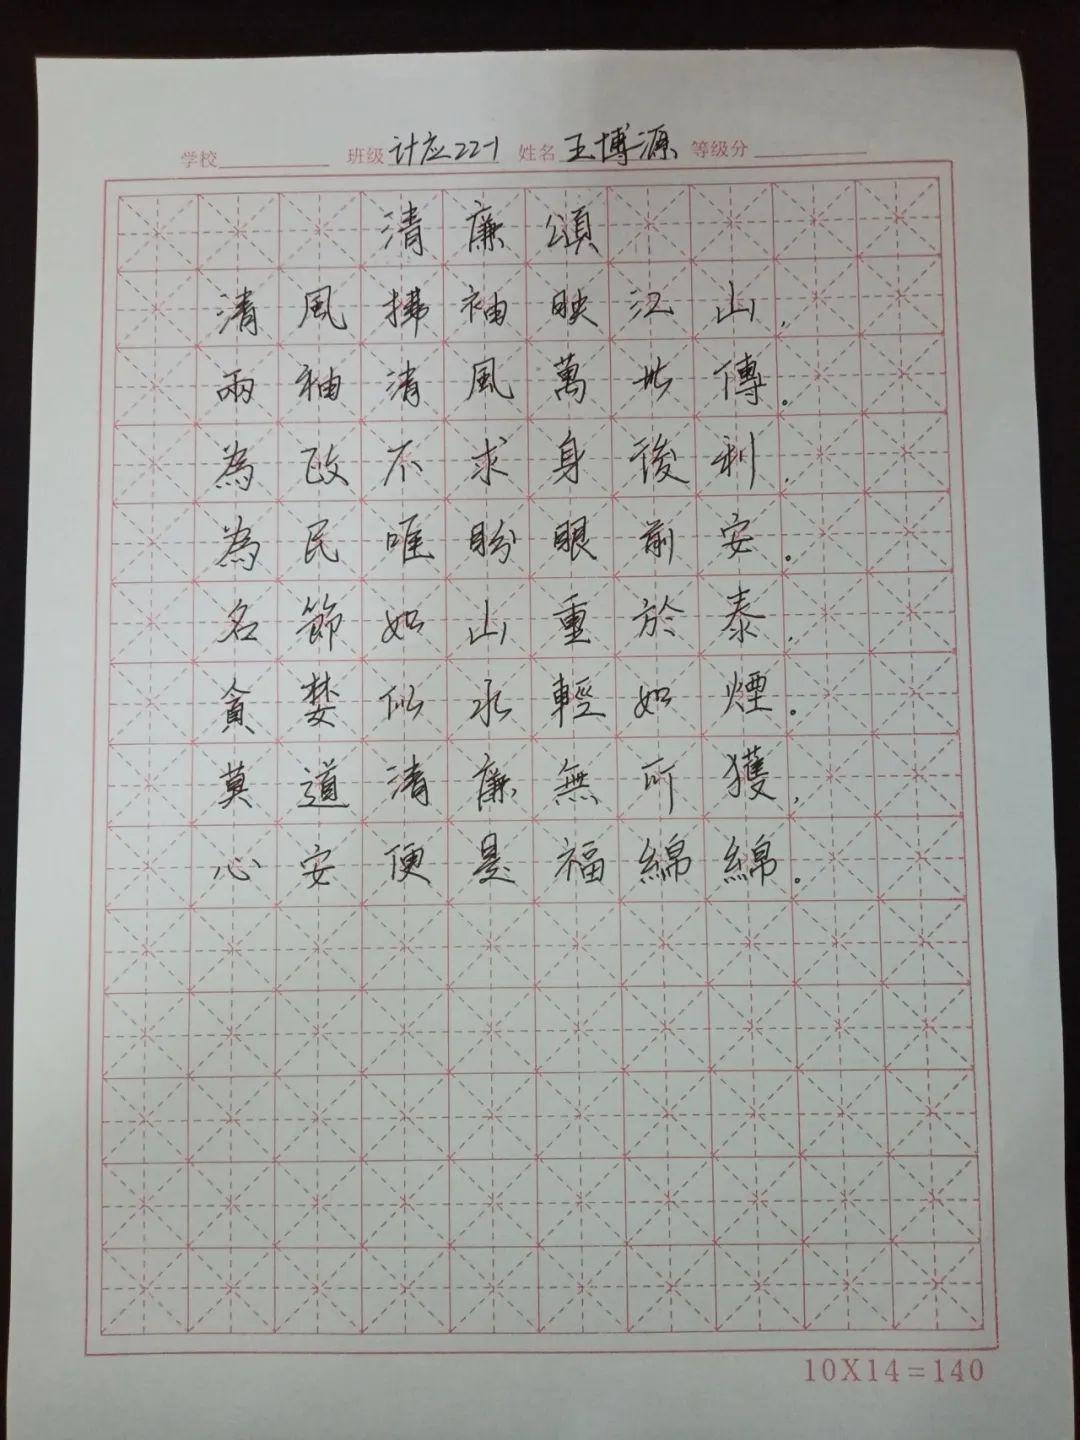 学校 班级 计应22-1 姓名 王博源 等级分
清廉頌
清風拂袖映江山,
兩袖清風萬世傳。
為政不求身後利,
為民唯盼眼前安。
名節如山重於泰,
貪婪似水輕如煙。
莫道清廉無所獲,
心安便是福綿綿。
10X14=140